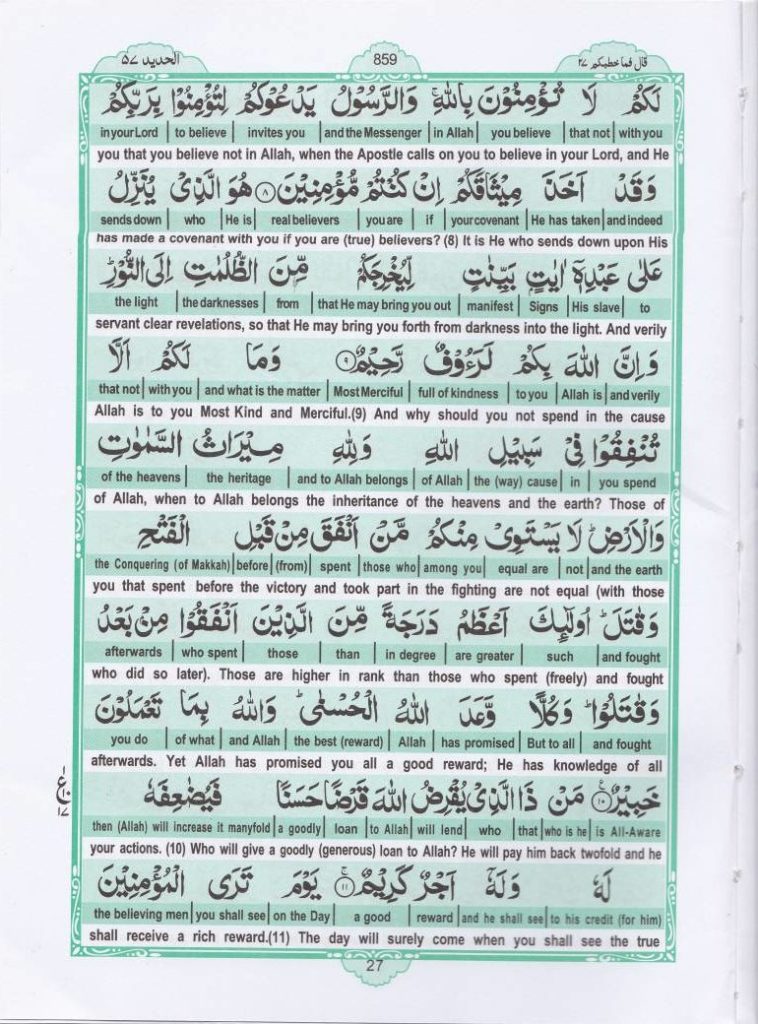 قال فما خطبكم ٢٧ 859 الحديد ٥٧
لَكُمْ لَا تُؤْمِنُوْنَ بِاللّٰهِ ۚ وَالرَّسُوْلُ يَدْعُوْكُمْ لِتُؤْمِنُوْا بِرَبِّكُمْ
in your Lord | to believe | invites you | and the Messenger | in Allah | you believe | that not | with you
you that you believe not in Allah, when the Apostle calls on you to believe in your Lord, and He
وَقَدْ اَخَذَ مِيْثَاقَكُمْ اِنْ كُنْتُمْ مُّؤْمِنِيْنَ ۝٨ هُوَ الَّذِيْ يُنَزِّلُ
sends down | who | He is | real believers | you are | if | your covenant | He has taken | and indeed
has made a covenant with you if you are (true) believers? (8) It is He who sends down upon His
عَلٰى عَبْدِهٖٓ اٰيٰتٍۭ بَيِّنٰتٍ لِّيُخْرِجَكُمْ مِّنَ الظُّلُمٰتِ اِلَى النُّوْرِ ؕ
the light | the darknesses | from | that He may bring you out | manifest | Signs | His slave | to
servant clear revelations, so that He may bring you forth from darkness into the light. And verily
وَاِنَّ اللّٰهَ بِكُمْ لَرَءُوْفٌ رَّحِيْمٌ ۝٩ وَمَا لَكُمْ اَلَّا
that not | with you | and what is the matter | Most Merciful | full of kindness | to you | Allah is | and verily
Allah is to you Most Kind and Merciful.(9) And why should you not spend in the cause
تُنْفِقُوْا فِيْ سَبِيْلِ اللّٰهِ وَلِلّٰهِ مِيْرَاثُ السَّمٰوٰتِ
of the heavens | the heritage | and to Allah belongs | of Allah | the (way) cause | in | you spend
of Allah, when to Allah belongs the inheritance of the heavens and the earth? Those of
وَالْاَرْضِ ؕ لَا يَسْتَوِيْ مِنْكُمْ مَّنْ اَنْفَقَ مِنْ قَبْلِ الْفَتْحِ
the Conquering (of Makkah) | before | (from) | spent | those who | among you | equal are | not | and the earth
you that spent before the victory and took part in the fighting are not equal (with those
وَقٰتَلَ ؕ اُولٰٓئِكَ اَعْظَمُ دَرَجَةً مِّنَ الَّذِيْنَ اَنْفَقُوْا مِنْۢ بَعْدُ
afterwards | who spent | those | than | in degree | are greater | such | and fought
who did so later). Those are higher in rank than those who spent (freely) and fought
وَقٰتَلُوْا ؕ وَكُلًّا وَّعَدَ اللّٰهُ الْحُسْنٰى ؕ وَاللّٰهُ بِمَا تَعْمَلُوْنَ
you do | of what | and Allah | the best (reward) | Allah | has promised | But to all | and fought
afterwards. Yet Allah has promised you all a good reward; He has knowledge of all
خَبِيْرٌ ۝١٠ مَنْ ذَا الَّذِيْ يُقْرِضُ اللّٰهَ قَرْضًا حَسَنًا فَيُضٰعِفَهٗ
then (Allah) will increase it manyfold | a goodly | loan | to Allah | will lend | who | that | who is he | is All-Aware
your actions. (10) Who will give a goodly (generous) loan to Allah? He will pay him back twofold and he
لَهٗ وَلَهٗٓ اَجْرٌ كَرِيْمٌ ۝١١ يَوْمَ تَرَى الْمُؤْمِنِيْنَ
the believing men | you shall see | on the Day | a good | reward | and he shall see | to his credit (for him)
shall receive a rich reward.(11) The day will surely come when you shall see the true
27